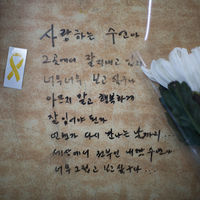 사랑하는 수연아
그곳에서 잘지내고 있지
너무너무 보고 싶구나
아프지 말고 행복하게
잘 있어야 된다
언젠가 다시 만나는 날까지...
세상에서 전부인 내딸 수연아
너무 그립고 보고싶구나...